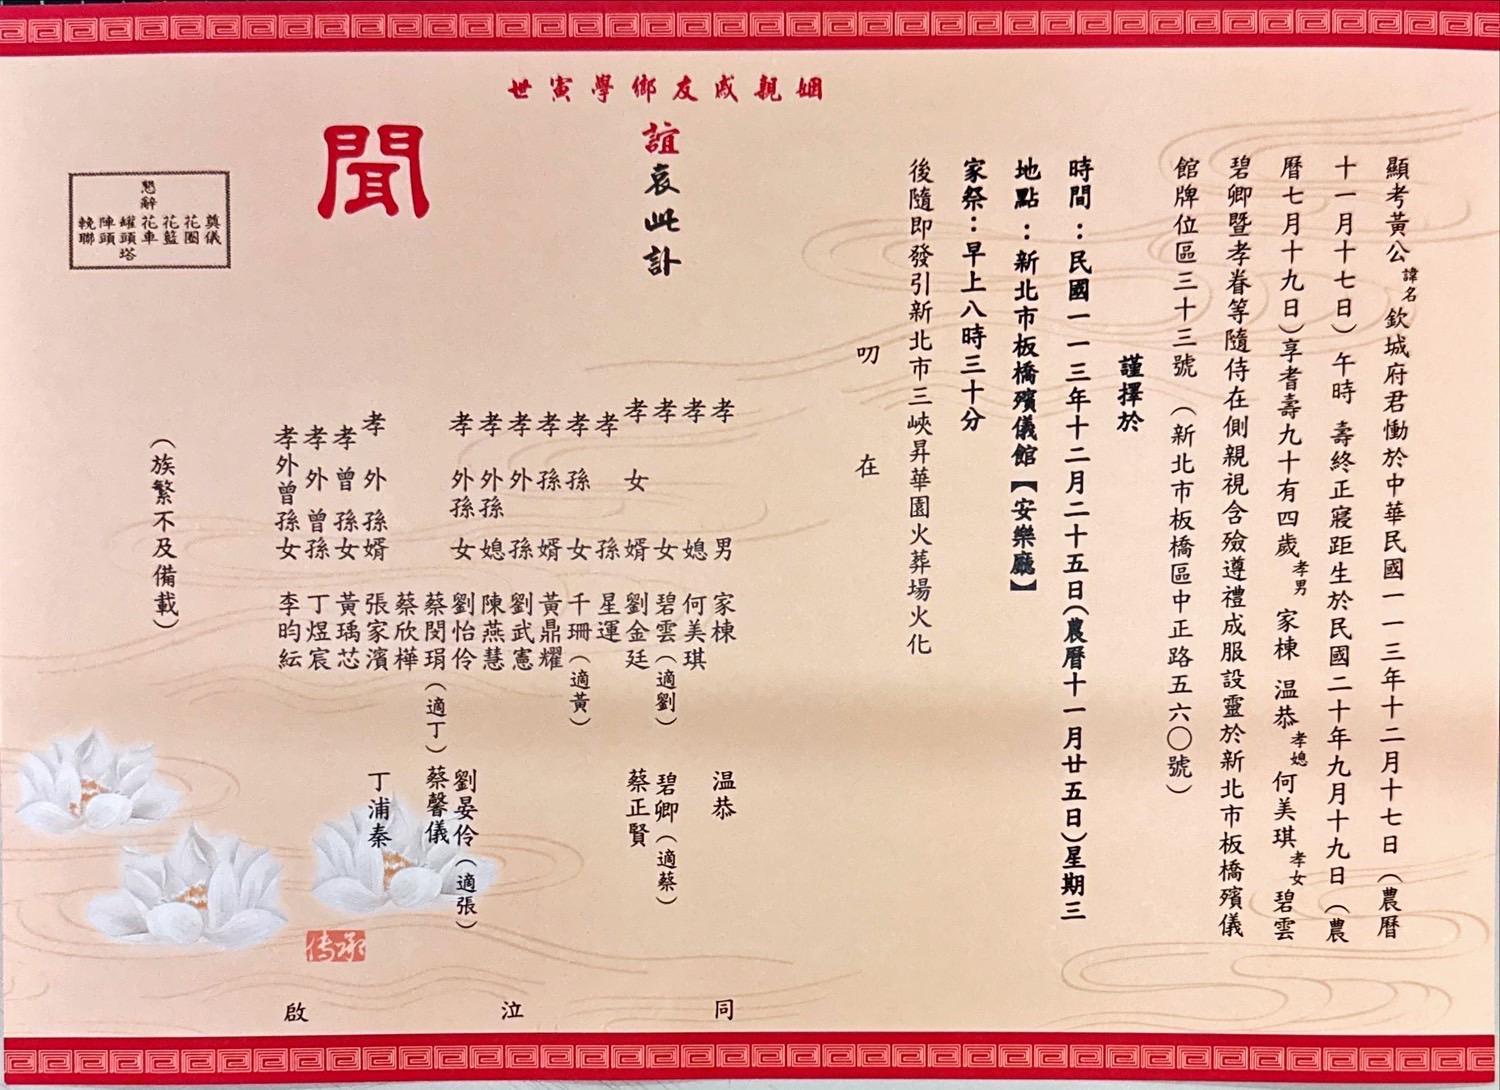 顯考黃公諱名欽城府君慟於中華民國一一三年十二月十七日（農曆
十一月十七日）午時　壽終正寢距生於民國二十年九月十九日（農
曆七月十九日）享耆壽九十有四歲孝男家棟　温恭孝媳何美琪孝女碧雲
碧卿暨孝眷等隨侍在側親視含殮遵禮成服設靈於新北市板橋殯儀
館牌位區三十三號　（新北市板橋區中正路五六〇號）
謹擇於
時間：民國一一三年十二月二十五日(農曆十一月廿五日)星期三
地點：新北市板橋殯儀館【安樂廳】
家祭：早上八時三十分
後隨即發引新北市三峽昇華園火葬場火化
叨　在
姻親戚友鄉學寅世
誼哀此訃
聞
孝男　家棟　温恭
孝媳　何美琪
孝女　碧雲（適劉）　碧卿（適蔡）
孝女婿　劉金廷　蔡正賢
孝孫　星運
孝孫女　千珊（適黃）
孝孫婿　黃鼎耀
孝外孫　劉武憲
孝外孫媳　陳燕慧
孝外孫女　劉怡伶　劉晏伶（適張）
蔡閔琄（適丁）　蔡馨儀
蔡欣樺
孝外孫婿　張家濱　丁浦秦
孝曾孫女　黃瑀芯
孝外曾孫　丁煜宸
孝外曾孫女　李昀紜
同　泣　啟
（族繁不及備載）
懇辭
奠儀
花圈
花籃
花車
罐頭塔
陣頭
輓聯
传承